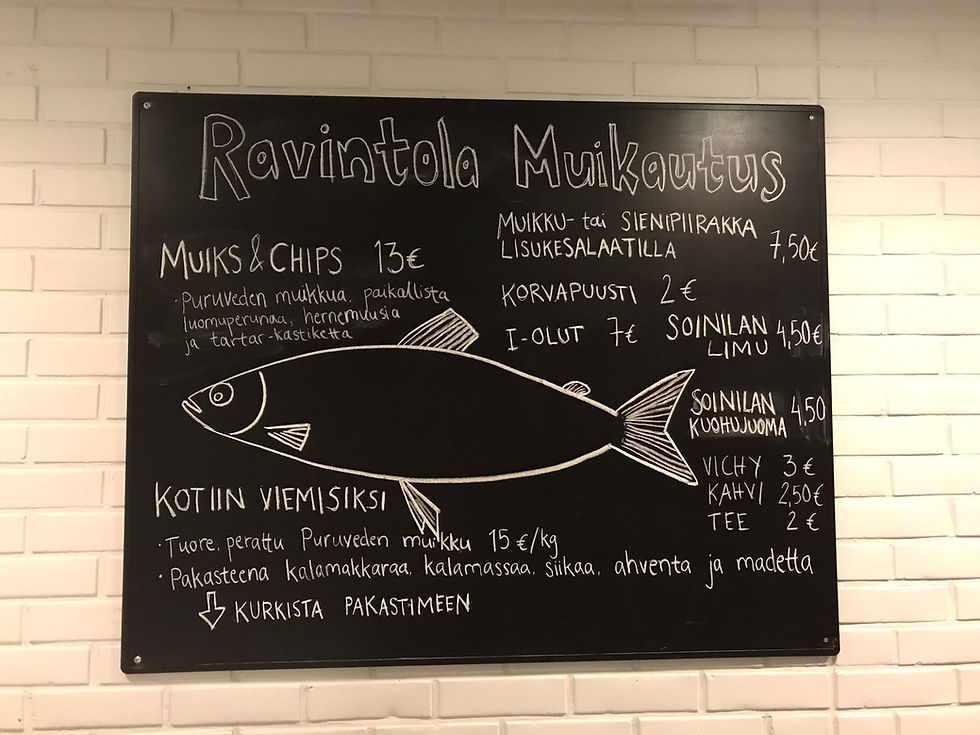 Ravintola Muikautus
MUIKS & CHIPS 13€
· Puruveden muikkua, paikallista
luomuperunaa, hernemuusia
ja tartar-kastiketta
MUIKKU- tai SIENIPIIRAKKA
LISUKESALAATILLA 7,50€
KORVAPUUSTI 2€
I-OLUT 7€
SOINILAN
LIMU 4,50€
SOINILAN
KUOHUJUOMA 4,50
VICHY 3€
KAHVI 2,50€
TEE 2€
KOTIIN VIEMISIKSI
· Tuore, perattu Puruveden muikku 15€/kg
· Pakasteena kalamakkaraa, kalamassaa, siikaa, ahventa ja madetta
KURKISTA PAKASTIMEEN